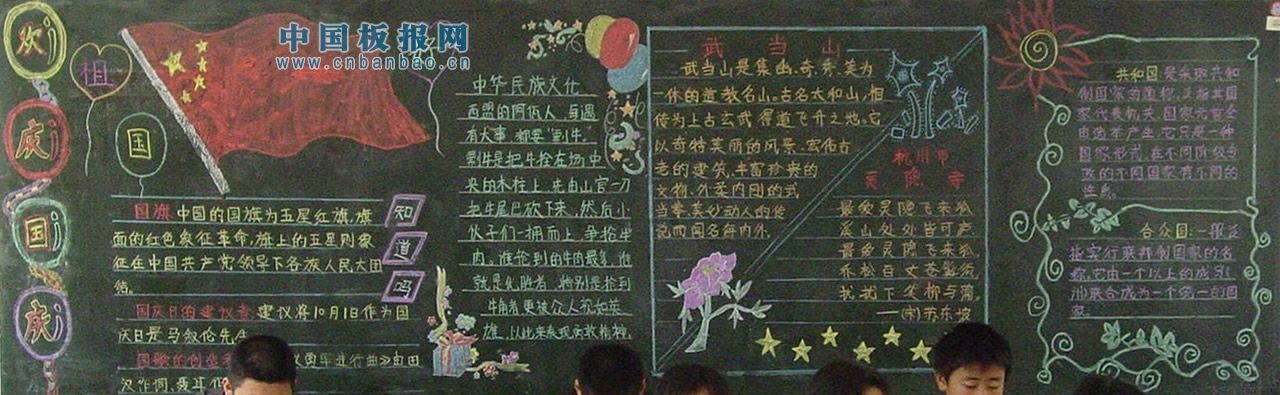 欢
庆
国
庆
祖
国
中国板报网
www.cnbanbao.cn
国旗 中国的国旗为五星红旗,旗
面的红色象征革命,旗上的五星则象
征在中国共产党领导下各族人民大团
结。
知
道
吗
国庆日的建议者 建议将10月1日作为国
庆日是马叙伦先生
国歌的创
义勇军进行曲》由田
汉作词,聂耳作
中华民族文化
西盟的阿佤人,每遇
有大事,都要"剽牛。"
剽牛是把牛拴在场中
央的木柱上,先由山官一刀
把牛尾巴砍下来,然后小
伙子们一拥而上,争抢牛
肉,谁抢到的牛肉最多,谁
就是优胜者,特别是抢到
牛角者更被众人视如英
雄,以此来表现勇敢精神。
武当山
武当山是集幽、奇、秀、美为
一体的道教名山。古名太和山,相
传为上古玄武得道飞升之地。它
以奇特美丽的风景、宏伟古
老的建筑、丰富珍贵的
文物、外柔内刚的武
当拳、美妙动人的传
说而闻名海内外。
杭州市
灵隐寺
最爱灵隐飞来孤
最爱灵隐飞来孤,
乔松百丈苍髯须
扰扰下笑柳与蒲。
——(宋)苏东坡
共和国 是
制国家的
家代表机关、国家元首由
由选举产生,它只是一种
国家形式,在不同阶级专
政的不同国家有不同的
性质。
合众国:一般正
指实行联邦制国家的名
称,它由一个以上的成员
州联合成为一个统一的国
家。